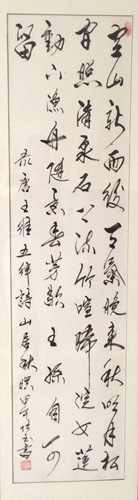 空山新雨後天氣晚來秋明月松
間照清泉石上流竹喧歸浣女蓮
動下漁舟隨意春芳歇王孫自可
留
录唐王維五律詩山居秋暝甲午書